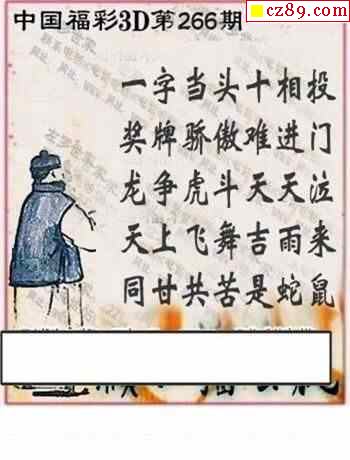 cz89.com
中国福彩3D第266期
一字当头十相投
奖牌骄傲难进门
龙争虎斗天天泣
天上飞舞吉雨来
同甘共苦是蛇鼠